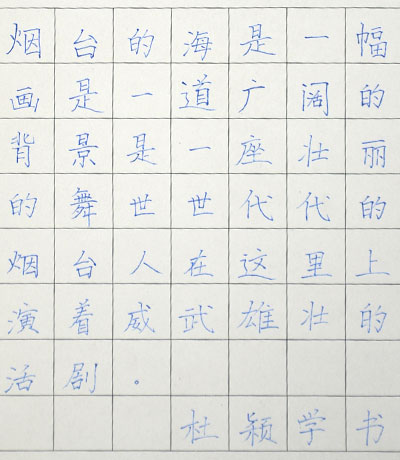 烟台的海是一幅
画是一道广阔的
背景是一座壮丽
的舞世世代代的
烟台人在这里上
演着威武雄壮的
活剧。
杜颖学书